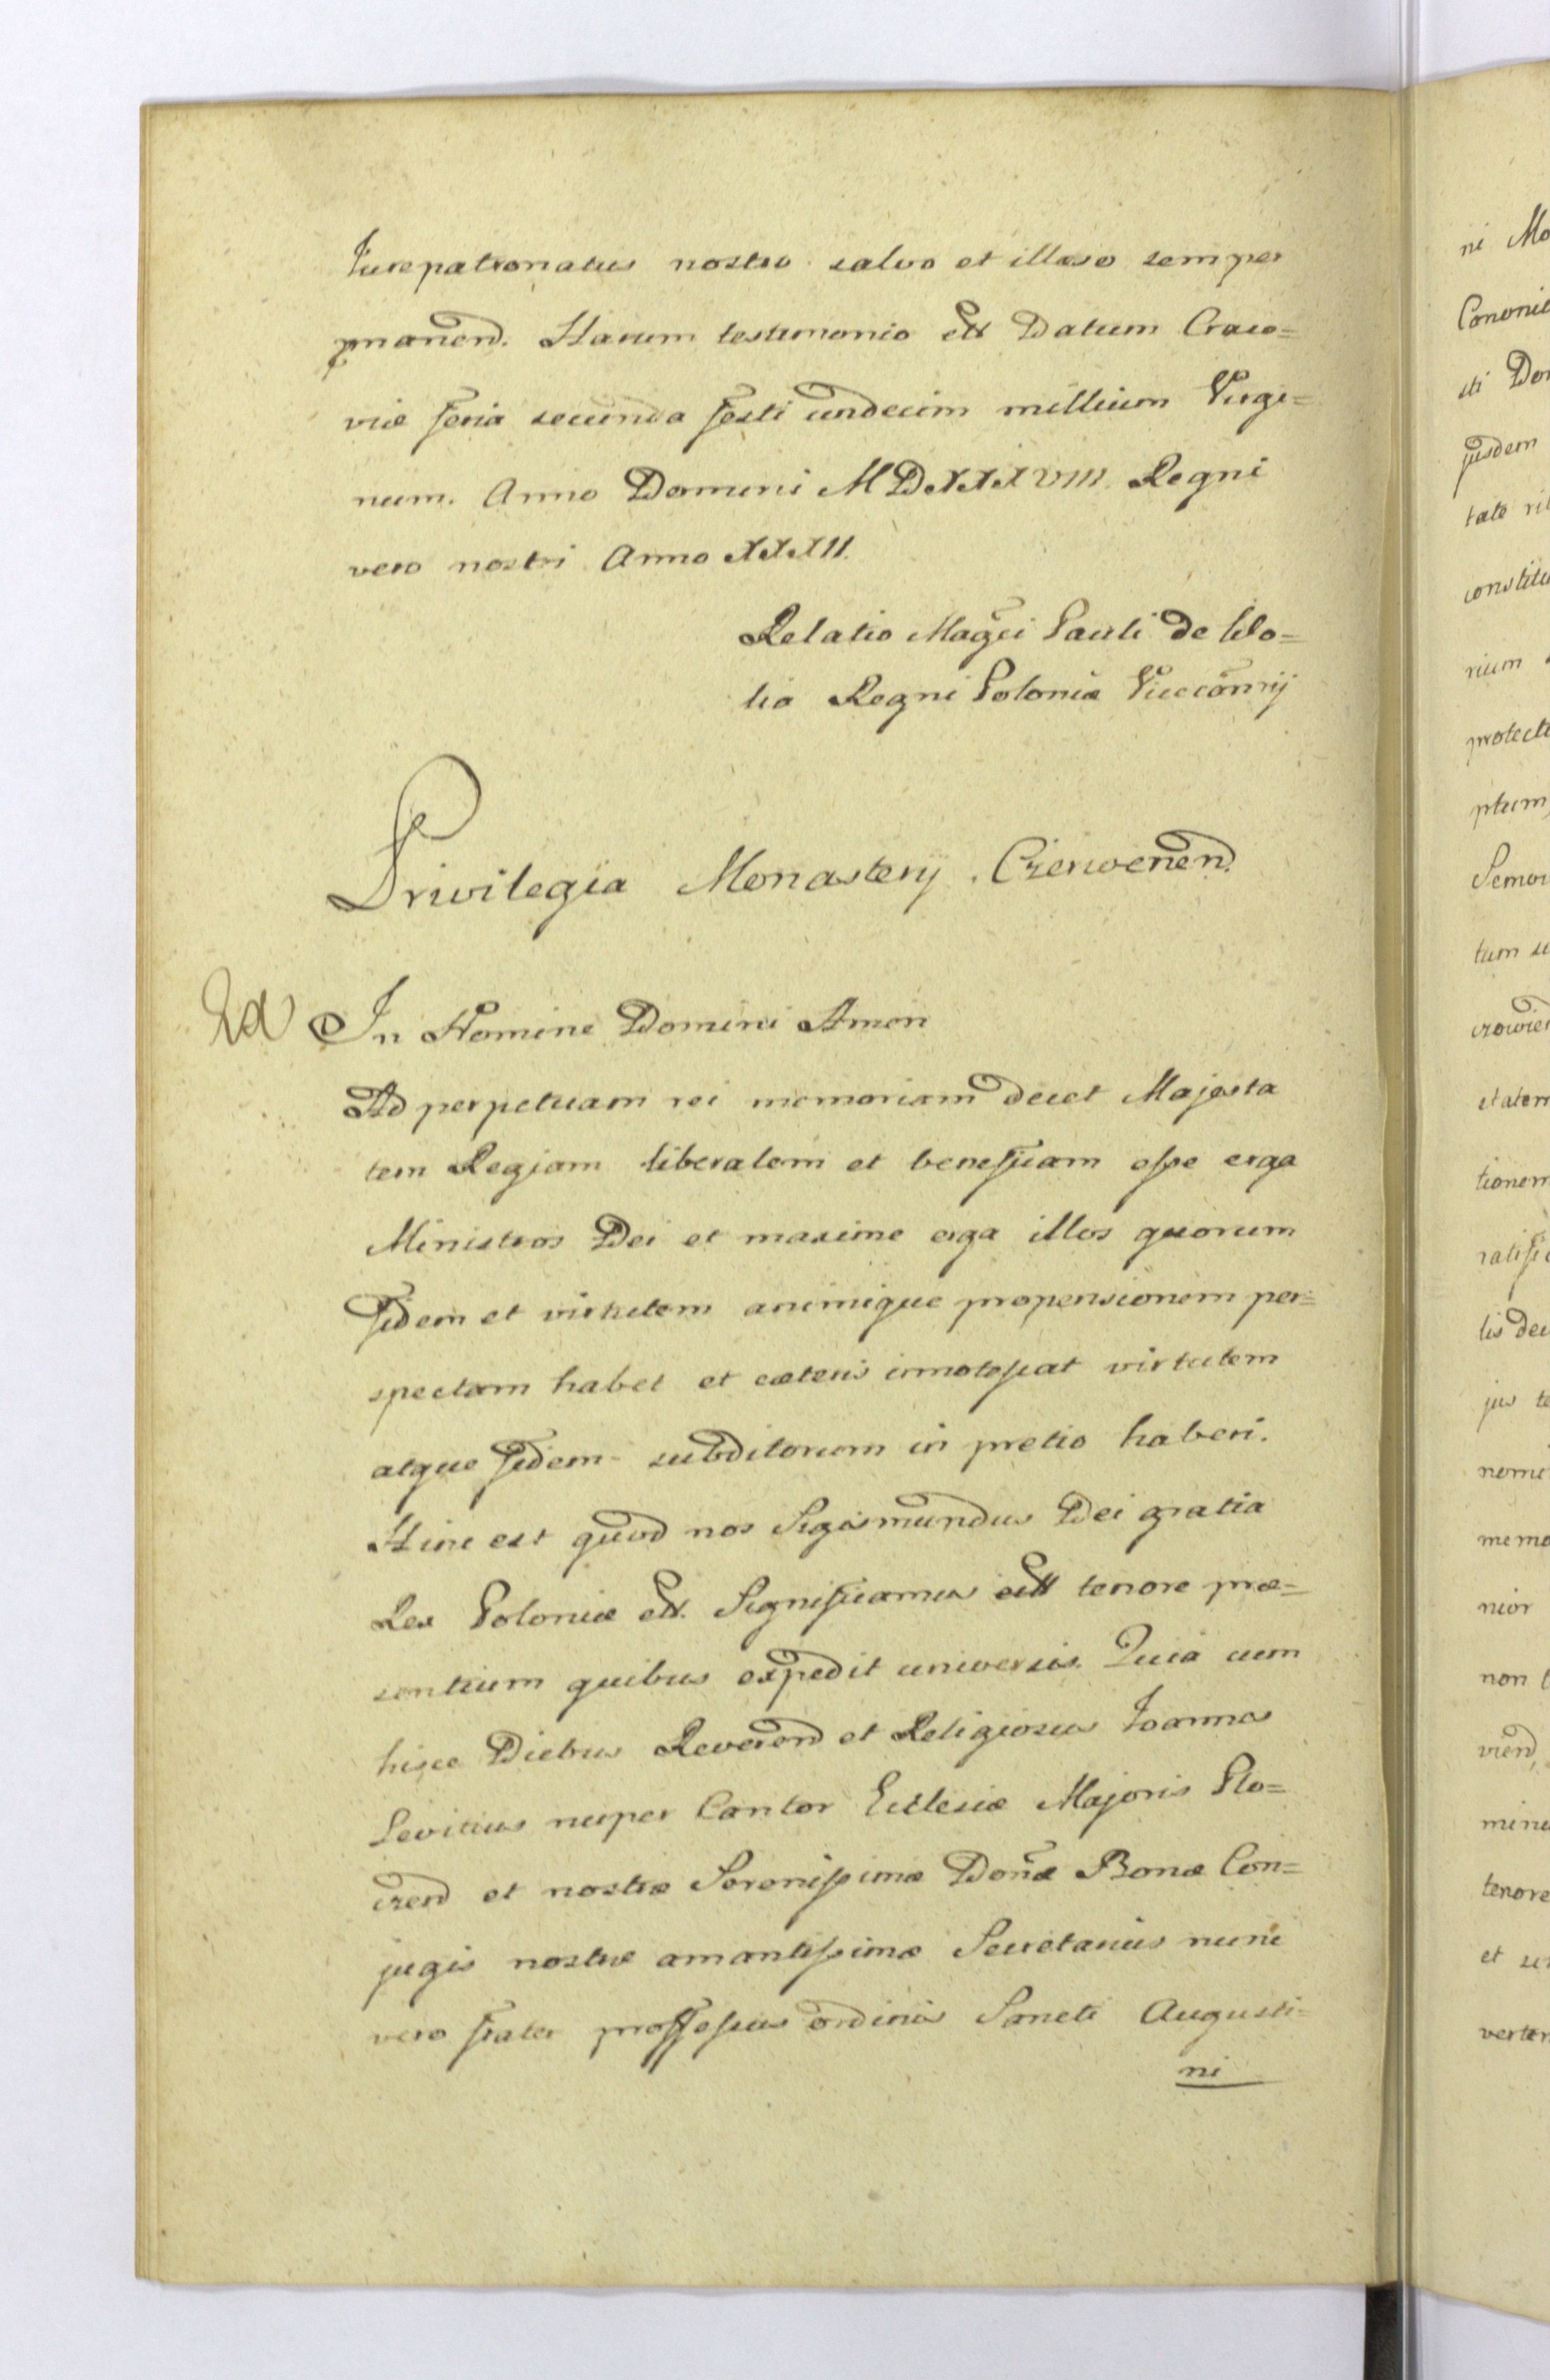 Jurepatronatus nostro salvo et illæso semper
pmanend. Harum testimonio ett Datum Craco=
viæ feria secunda festi undecim millium Virgi=
num. Anno Domini MDXXXVIII. Regni
vero nostri Anno XXXII.
Relatio Magci Pauli de Wo=
lia Regni Poloniæ Viccãnrij
Privilegia Monasterij Czerwenen̄.
In Nomine Domini Amen
Ad perpetuam rei memoriam decet Majesta
tem Regiam liberalem et beneficam esse erga
Ministros Dei et maxime erga illos quorum
fidem et virtutem animique propensionem per=
spectam habet et cæteris innotescat virtutem
atque fidem subditorum in pretio haberi.
Hinc est quod nos Sigismundus Dei gratia
Rex Poloniæ ett. Significamus ett tenore præ=
sentium quibus expedit universis. Quia cum
hisce Diebus Reverend et Religiosus Joannes
Levitius nuper Cantor Ecclesiæ Majoris Plo=
czen̄ et nostræ Serenissimæ Donæ Bonæ Con=
jugis nostræ amantissimæ Secretarius nunc
vero frater proffessus ordinis Sancti Augusti=
ni
ni Mo
Canonic
sti Don
jusdem
tate ri
constitu
rium
protecti
ptum
Semov
tum su
czowien
etatem
tionem
ratific
lis dec
jus te
nomi
memo
nior
non
vien̄,
minu
tenore
et
verter